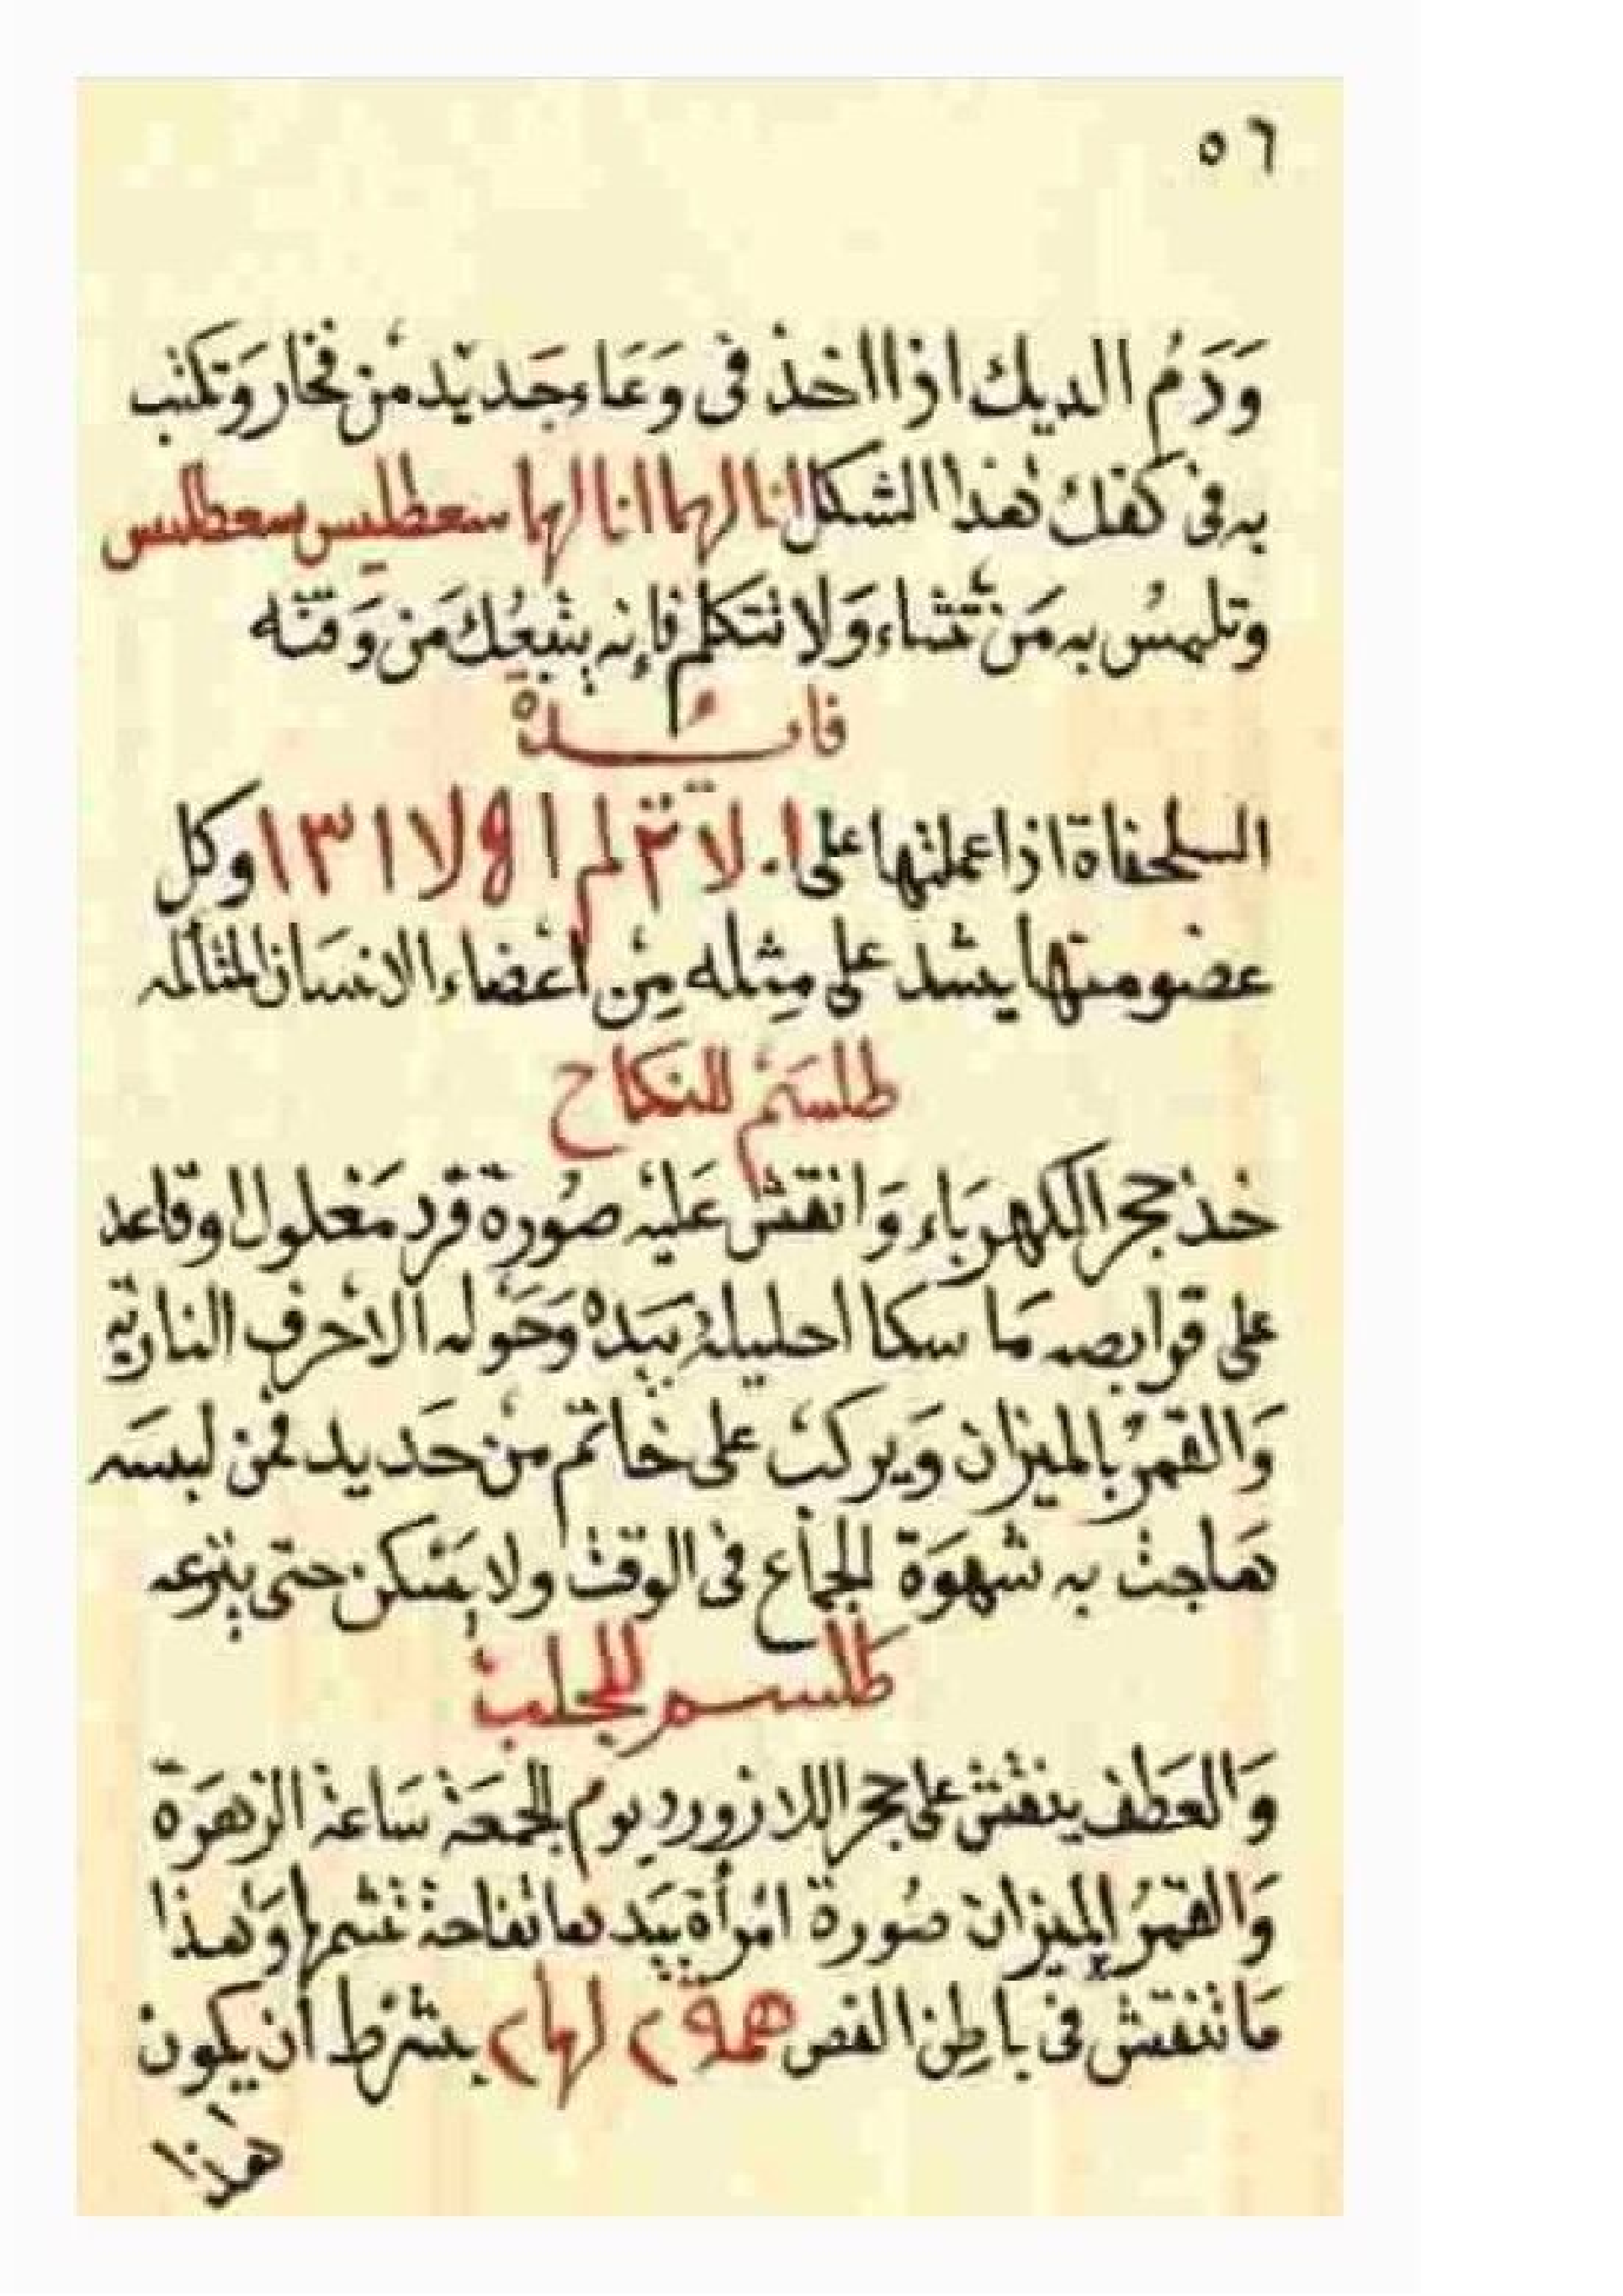 ٥٦
وَدَمُ الديك اذا اخذ فى وَعَاء جَديْد منْ فخار وَتكتب
به فى كفك هذا الشكل انا لها انا لها سعطيس سعطلس
وتلمسُ به مَنْ تشاء وَلا تتكلم فإنه يتبعُك مَن وَقتَه
فائدة
السلحفاة اذا عملتها على وكل
عضو منها يشد على مِثله مِنْ أعْضاء الانسَان المثاله
طلسَمْ للنكاح
خذ حجر الكهربَاء وَانقش عَليْه صُورة قرد مَغلول وقاعد
على قرابصه مَا سكا احليلهُ بيَده وَحَوله الاحْرف الناريَّة
وَالقمرُ بالميزان وَيركبْ على خاتم منْ حَديد فمن لبسَه
هَاجت به شهوَة الجمَاع فى الوقت ولا يَسْكن حتى ينزعه
طلسم للجلب
وَالعَطف ينقش على حجر اللازورد يوم الجمعَة سَاعَة الزهَرَة
وَالقمَرُ بالميزان صُورة امْرأة بيَدها تفاحة تشمها وَهذا
مَا تنقش فى باطِن الفص بشرْط أن يكون
هذا